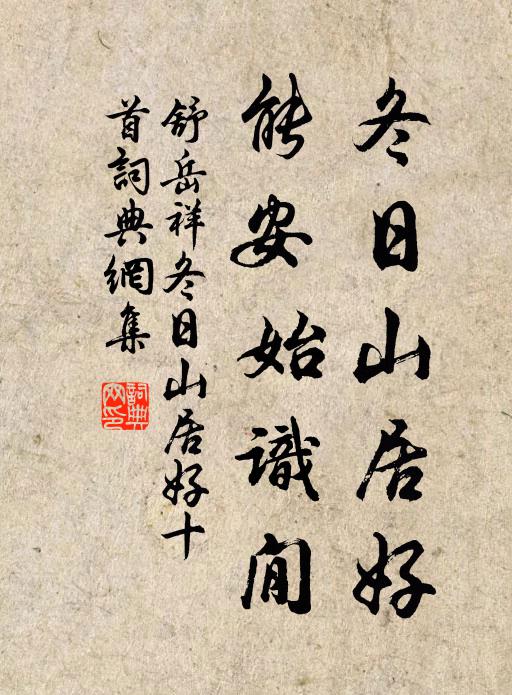 冬日山居好
能安始識閒
舒岳祥冬日山居好十
首詞典網集
詞典
网印